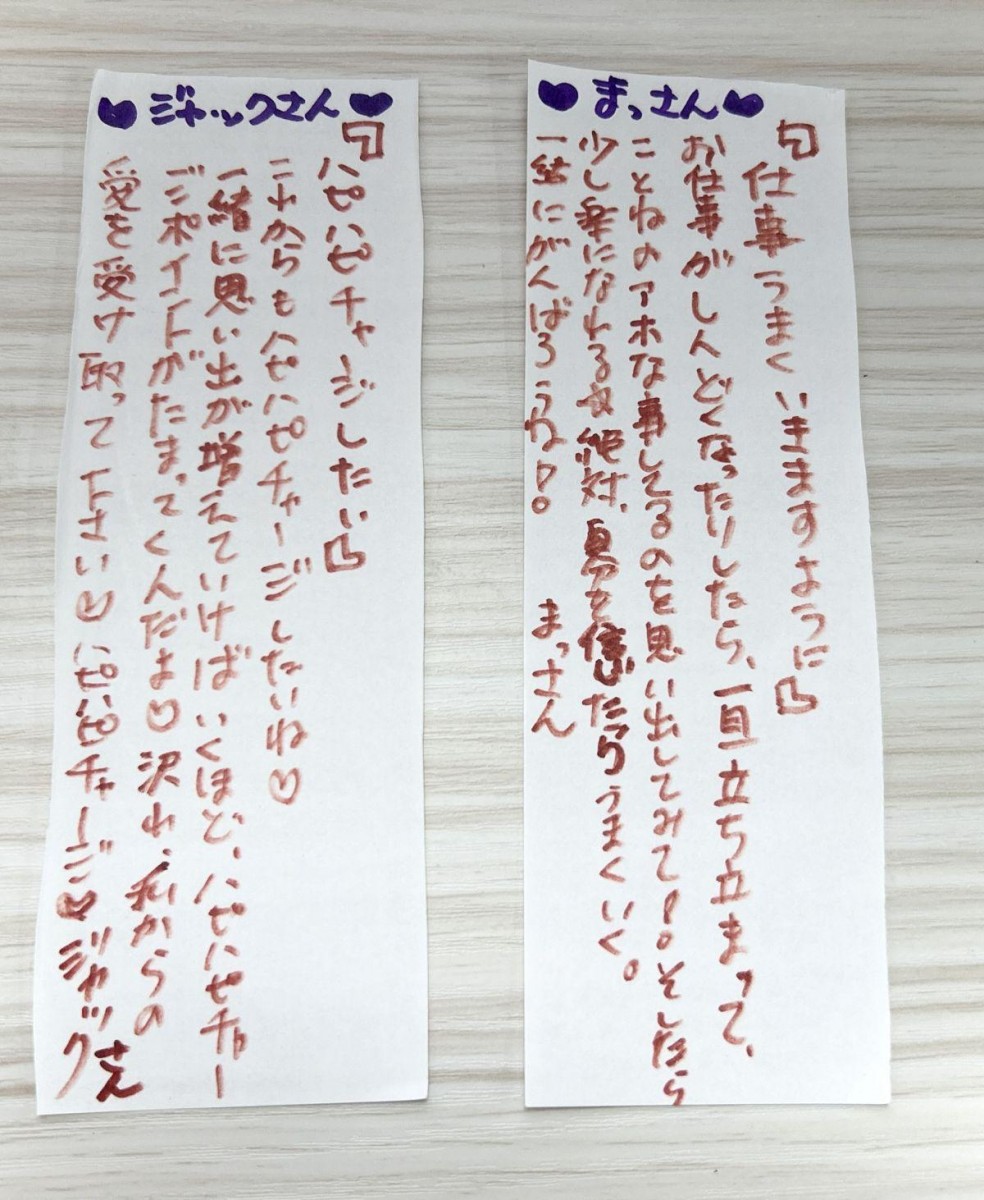 ♥まっさん♥
「仕事うまくいきますように」
お仕事がしんどくなったりしたら、一旦立ち立まって、
ことねのアホな事してるのを思い出してみて!。そしたら
少し楽になれる 絶対、自分を信じたらうまくいく。
一緒にがんばろうね!。 まっさん
♥ジャックさん♥
「ハピハピチャージしたい」
これからもハピハピチャージしたいね♡
一緒に思い出が増えていけばいくほど、ハピハピチャー
ジポイントがたまってくんだよ♡沢山、私からの
愛を受け取って下さい♡ハピハピチャージ♡ジャックさん